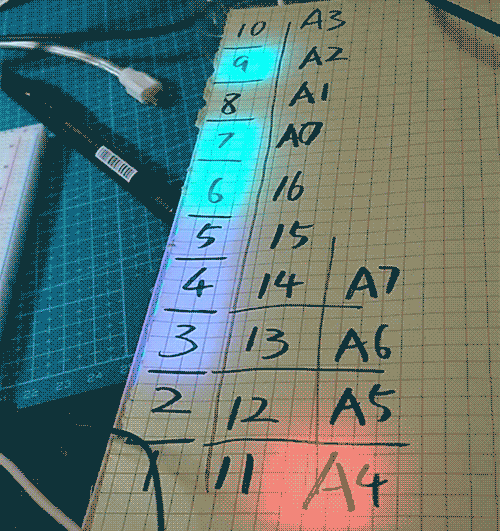 10 A3
9 A2
8 A1
7 A0
6 16
5 15
4 14 A7
3 13 A6
2 12 A5
1 11 A4